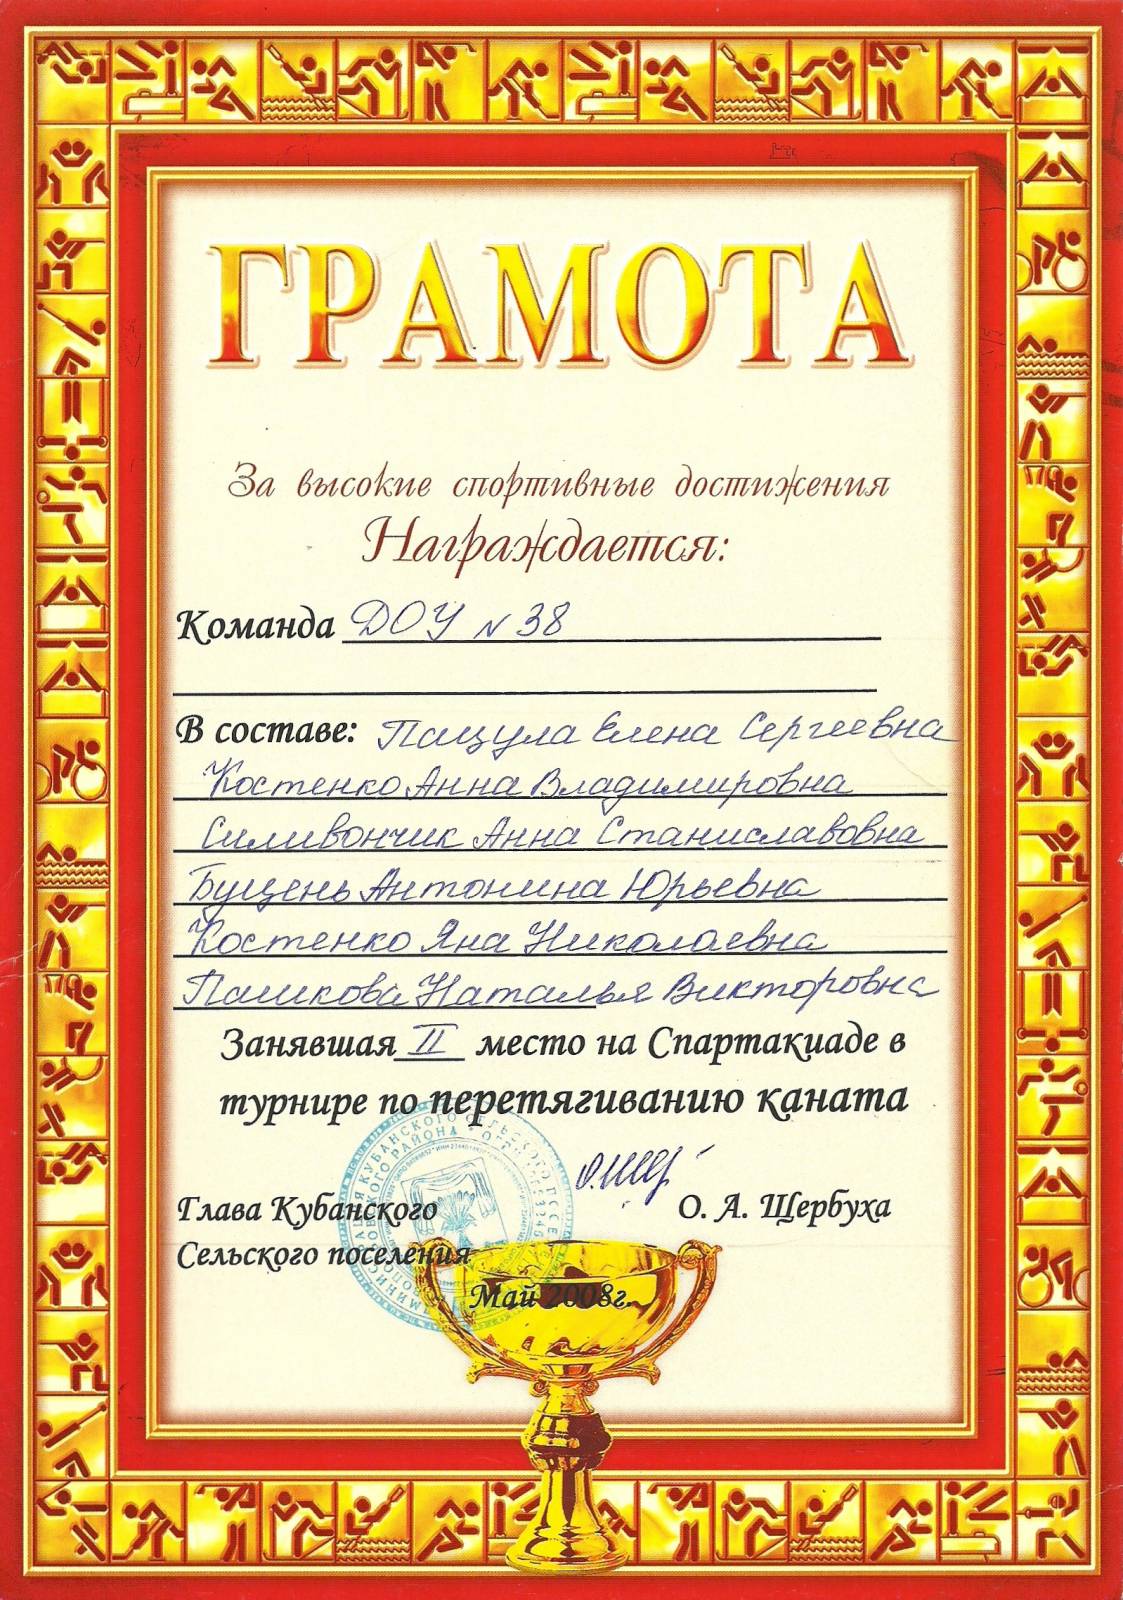 ГРАМОТА
За высокие спортивные достижения
Награждается:
Команда ДОУ N 38
В составе: Пацула Елена Сергеевна
Костенко Анна Владимировна
Силивончик Анна Станиславовна
Буцень Антонина Юрьевна
Костенко Яна Николаевна
Пашкова Наталья Викторовна
Занявшая II место на Спартакиаде в
турнире по перетягиванию каната
Глава Кубанского
О. А. Щербуха
Сельского поселения
Май 2008г.